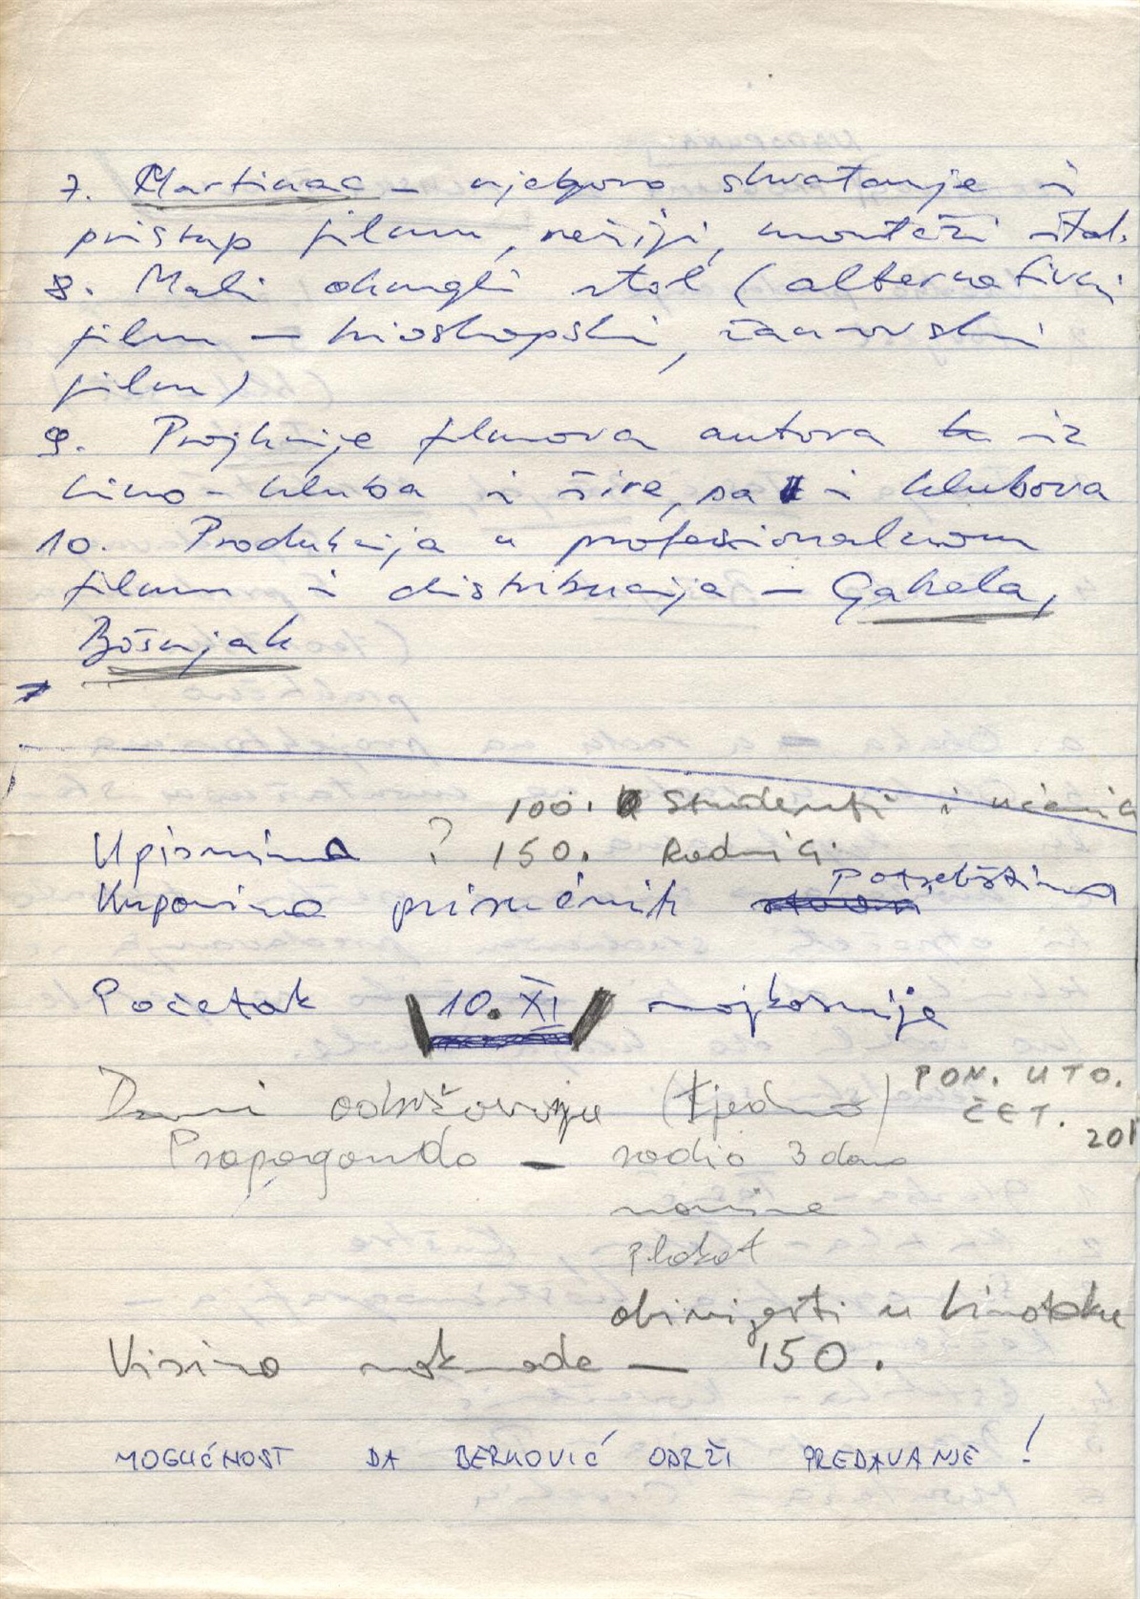 7. Martinac – njegovo shvatanje i
pristup filmu, režiji, montaži itd.
8. Mali okrugli stol (alternativni
film – kioskopski, žanrovski
film)
9. Projkcije filmova autora iz
kino-kluba i šire, sa i klubova
10. Produkcija u profesionalnom
filmu i distribucija – Gabela,
Bošnjak
100. Studenti i učenici
Upisnina ? 150. Radnici.
Kupovina priručnih potrebština
Početak 10. XI najkasnije
Dani održavanja (tjedno) PON. UTO.
ČET. 20h
Propaganda – radio 3 dana
novine
plakat
obavijesti u kinoteku
Visina naknade – 150.
MOGUĆNOST DA BERKOVIĆ ODRŽI PREDAVANJE!